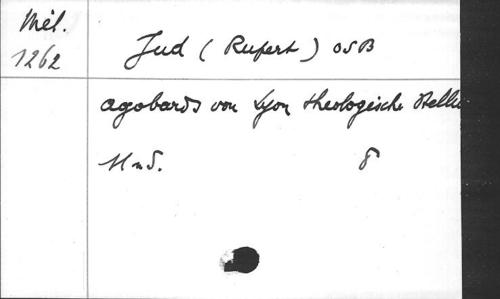 Mél.
1262
Jud (Rupert) OSB
Agobards von Lyon theologische Stellu
8